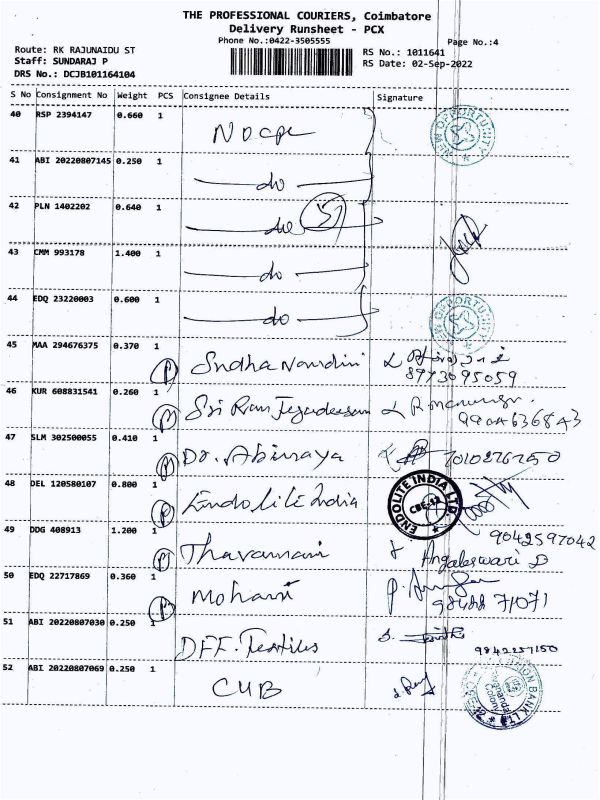 THE PROFESSIONAL COURIERS, Coimbatore
Delivery Runsheet - PCX
Phone No.:0422-3505555
Page No.:4
Route: RK RAJUNAIDU ST
RS No.: 1011641
Staff: SUNDARAJ P
RS Date: 02-Sep-2022
DRS No.: DCJB101164104
S No Consignment No Weight PCS Consignee Details Signature
40 RSP 2394147 0.660 1
41 ABI 20220807145 0.250 1 do
42 PLN 1402202 0.640 1 do
43 CMM 993178 1.400 1 do
44 EDQ 23220003 0.600 1 do
NEW OPPORTUNITY
45 MAA 294676375 0.370 1 Sudha Nandini
8973095059
46 KUR 608831541 0.260 1 Sri Ram Jegadeesan
47 SLM 302500055 0.410 1 Dr. Abinaya
48 DEL 120580107 0.800 1 Endolite India
ENDOLITE INDIA LTD. CBE-12
9042597042
49 DDG 408913 1.200 1 Thavamani Angaleswari D
50 EDQ 22717869 0.360 1 Mohan
71071
51 ABI 20220807030 0.250 1 DFF. Textiles
9842257150
52 ABI 20220807069 0.250 1 CUB
UNION BANK LTD